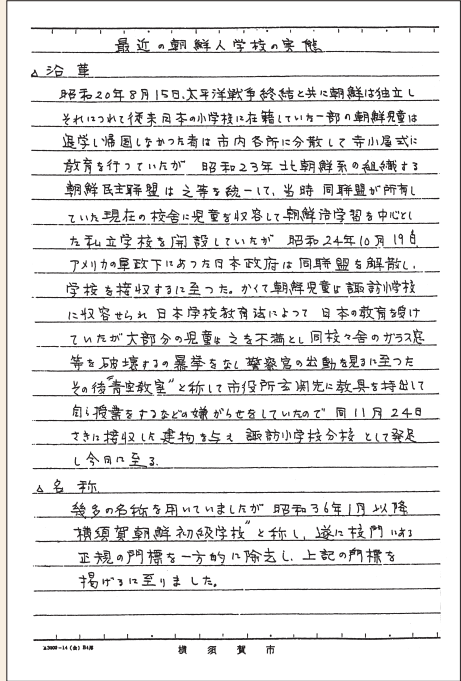 最近の朝鮮人学校の実態
△沿革
昭和20年8月15日、太平洋戦争終結と共に朝鮮は独立し
それにつれて従来日本の小学校に在籍していた一部の朝鮮児童は
退学し帰国しなかった者は市内各所に分散して寺小屋式に
教育を行っていたが 昭和23年北朝鮮系の組織する
朝鮮民主聯盟は之等を統一して、当時 同聯盟が所有し
ていた現在の校舎に児童を収容して朝鮮語学習を中心とし
た私立学校を開設していたが 昭和24年10月19日
アメリカの軍政下にあった日本政府は同聯盟を解散し、
学校を接収するに至った。かくて朝鮮児童は諏訪小学校
に収容せられ 日本学校教育法によって 日本の教育を受け
ていたが大部分の児童は之を不満とし同校々舎のガラス窓
等を破壊するの暴挙をなし警察官の出動を見るに至った
その後"青空教室"と称して市役所玄関先に教具を持出して
自ら授業をするなどの嫌がらせをしていたので 同11月24日
さきに接収した建物を与え 諏訪小学校分校として発足
し今日に至る.
△名称
幾多の名称を用いていましたが 昭和36年1月以降
"横須賀朝鮮初級学校"と称し、遂に校門にある
正規の門標を一方的に除去し、上記の門標を
掲げるに至りました。
横須賀市